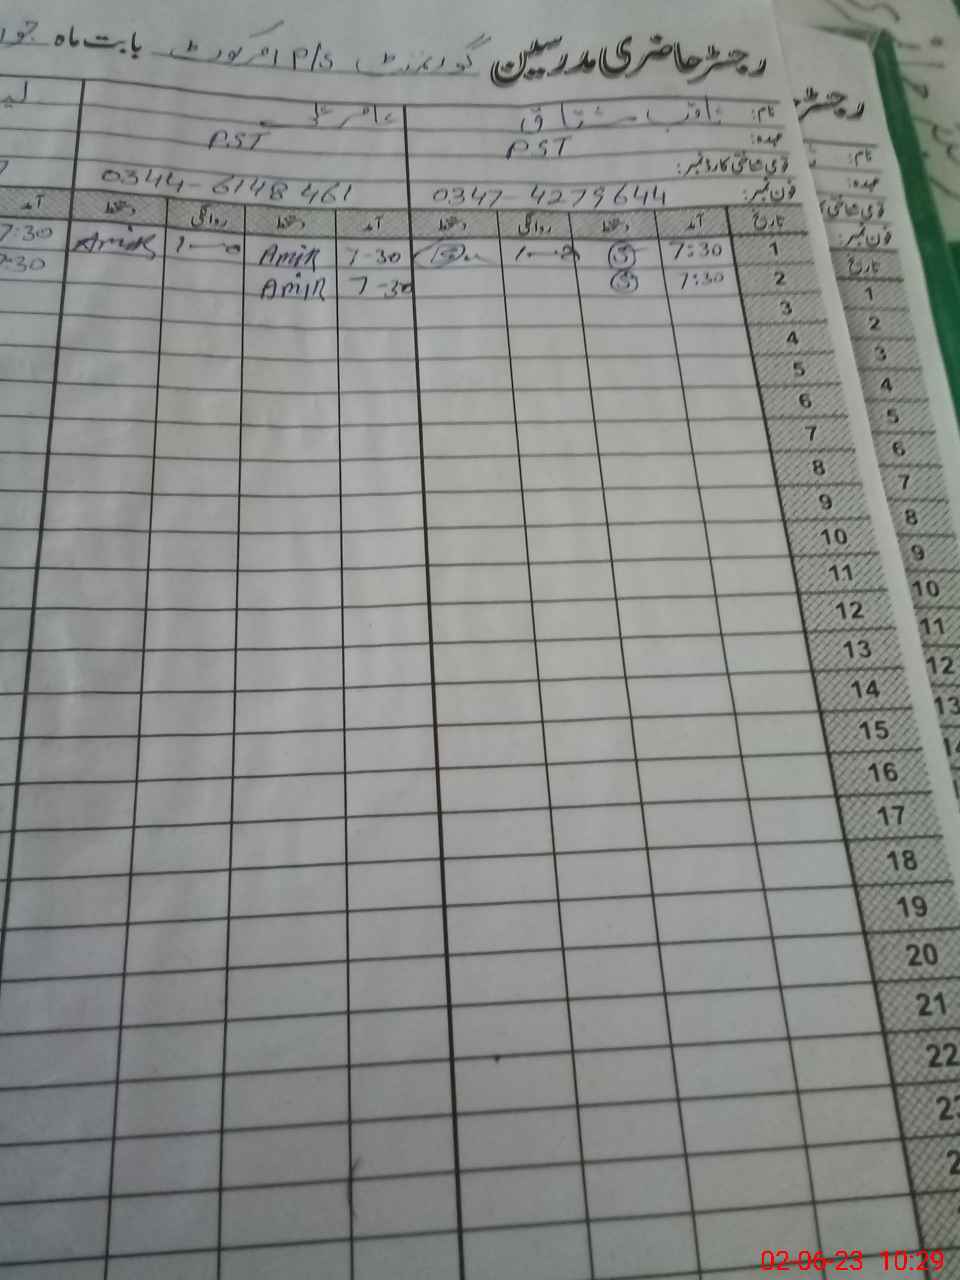 رجسٹر حاضری مدرسین گورنمنٹ P/S بابت ماہ
نام: ثاقب مشتاق
عہدہ: PST PST
قومی شناختی کارڈ نمبر:
فون نمبر: 0347 4279644 0344-6148461
تاریخ آمد دستخط روانگی دستخط آمد دستخط روانگی دستخط آمد
1 7:30 1-00 7-30 Amir 1-00 Amir 7:30
2 7:30 7-30 Amir 7:30
3
4
5
6
7
8
9
10
11
12
13
14
15
16
17
18
19
20
21
22
رجسٹر
نام:
عہدہ:
قومی شناختی
فون نمبر:
تاریخ
1
2
3
4
5
6
7
8
9
10
11
12
13
02-06-23 10:29